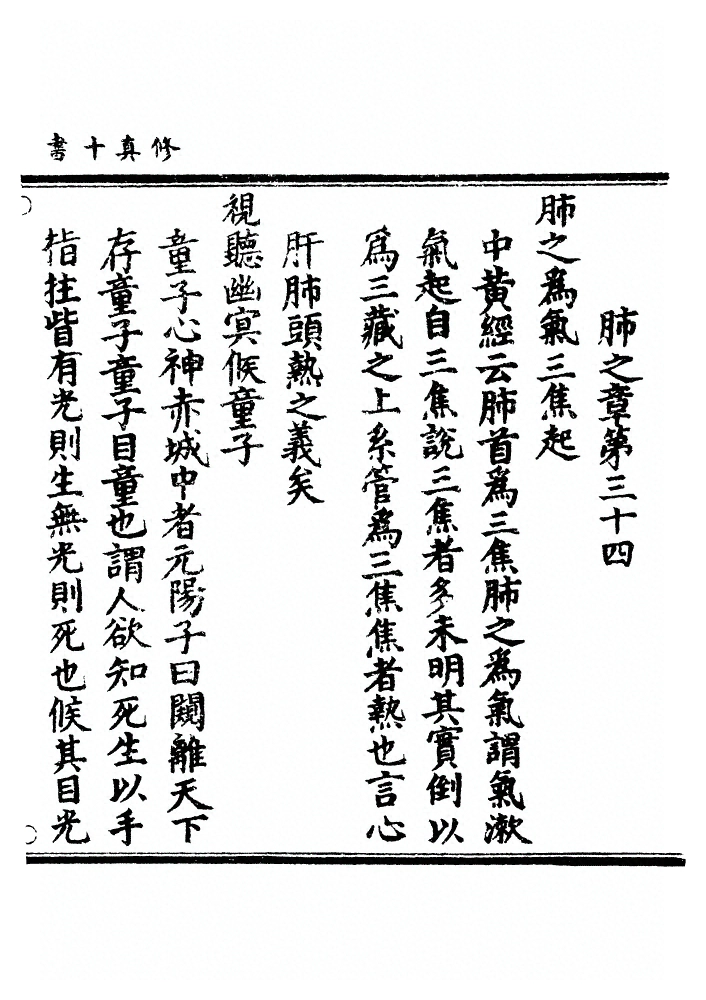 修真十書
肺之章第三十四
肺之爲氣三焦起
中黃經云肺首爲三焦肺之爲氣謂氣漱
氣起自三焦說三焦者多未明其實倒以
爲三藏之上系管爲三焦焦者熱也言心
肝肺頭熱之義矣
視聽幽冥候童子
童子心神赤城中者元陽子曰闚離天下
存童子童子目童也謂人欲知死生以手
指拄眥有光則生無光則死也候其目光